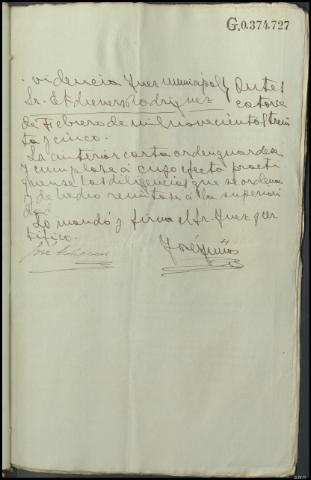 G.0.374.727
videncia Juez Municipal
Sr. Etchever Rodriguez catorce
de Febrero de mil novecientos trein
ta y cinco.
La anterior carta orden guardese
y cumplase a cuyo efecto practi
quense las diligencias que se ordena
y de hecho remitase a la superiori
dad
Lo mandó y firma el Sr. Juez cer
tifico.
José